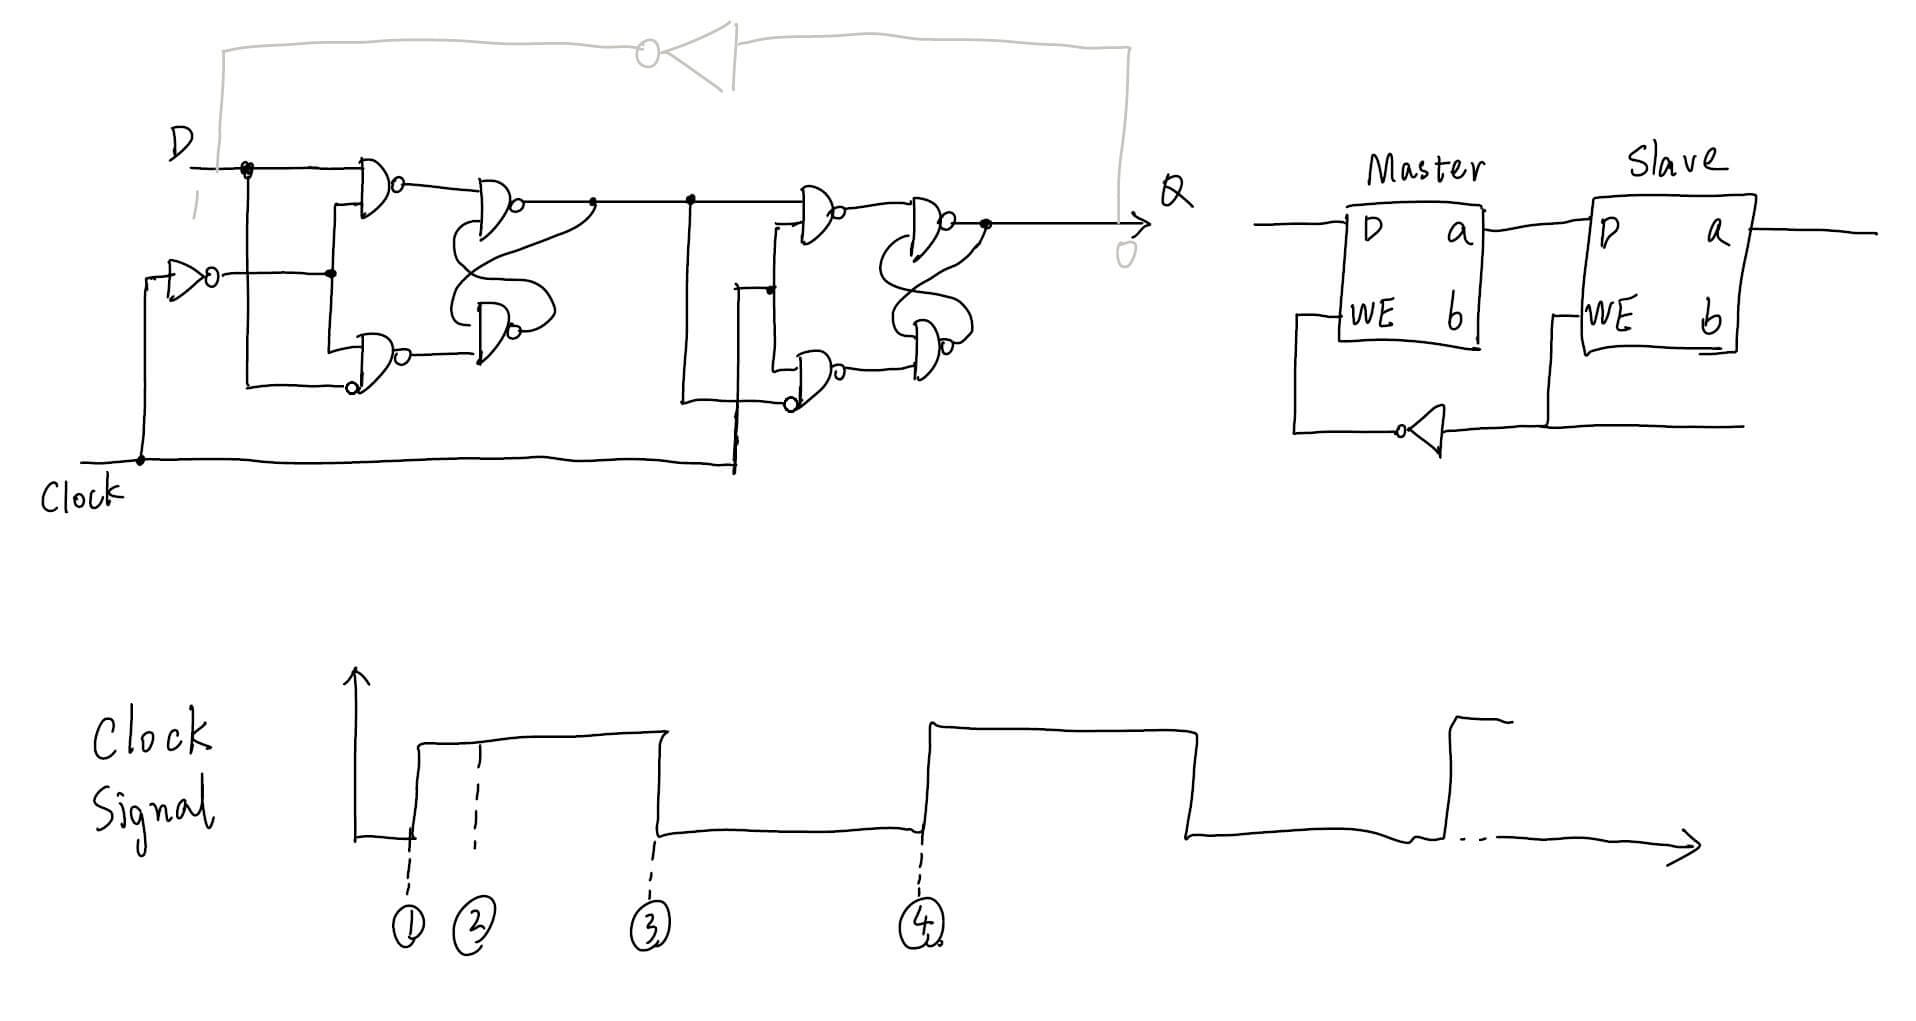 D
1
Q
0
Clock
Master
Slave
D a
WE b
D a
WE b
Clock
Signal
1 2 3 4